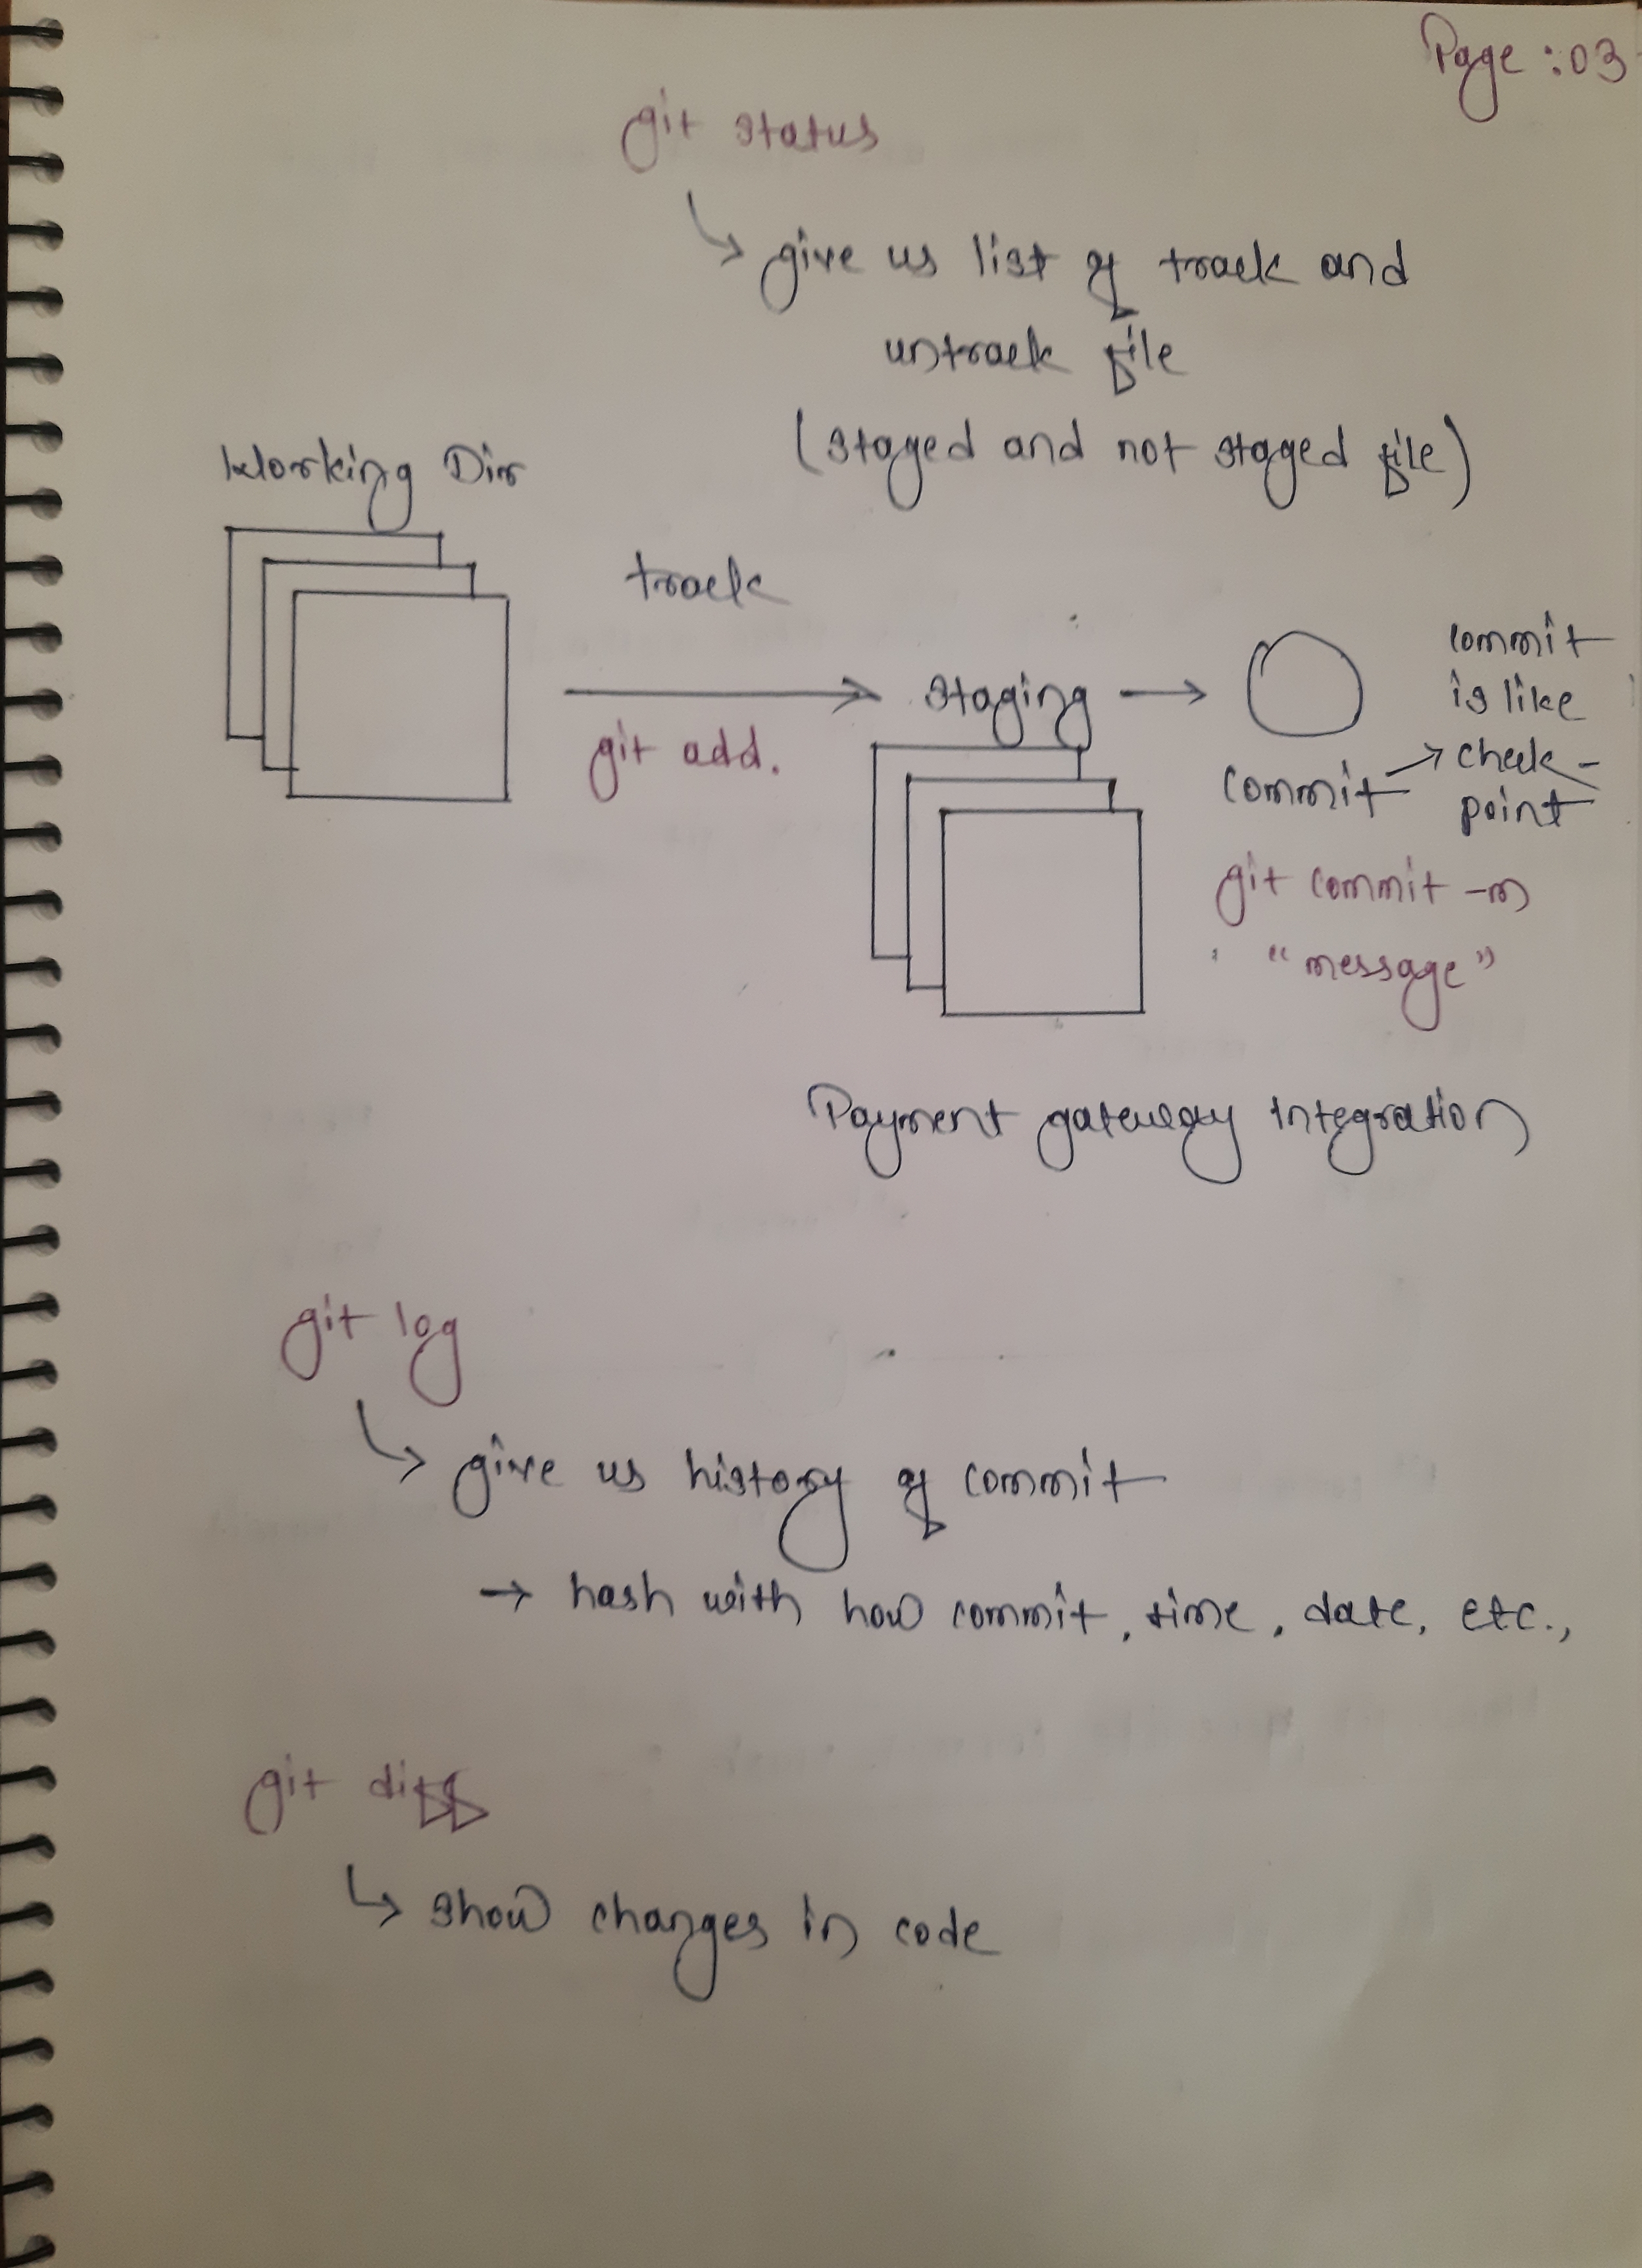 Page :03
git status
give us list of track and
untrack file
(staged and not staged file)
Working Dir
track
git add.
staging
commit
commit
is like
check-
point
git commit -m
"message"
Payment gateway integration
git log
give us history of commit
→ hash with how commit, time, date, etc.,
git diff
show changes in code